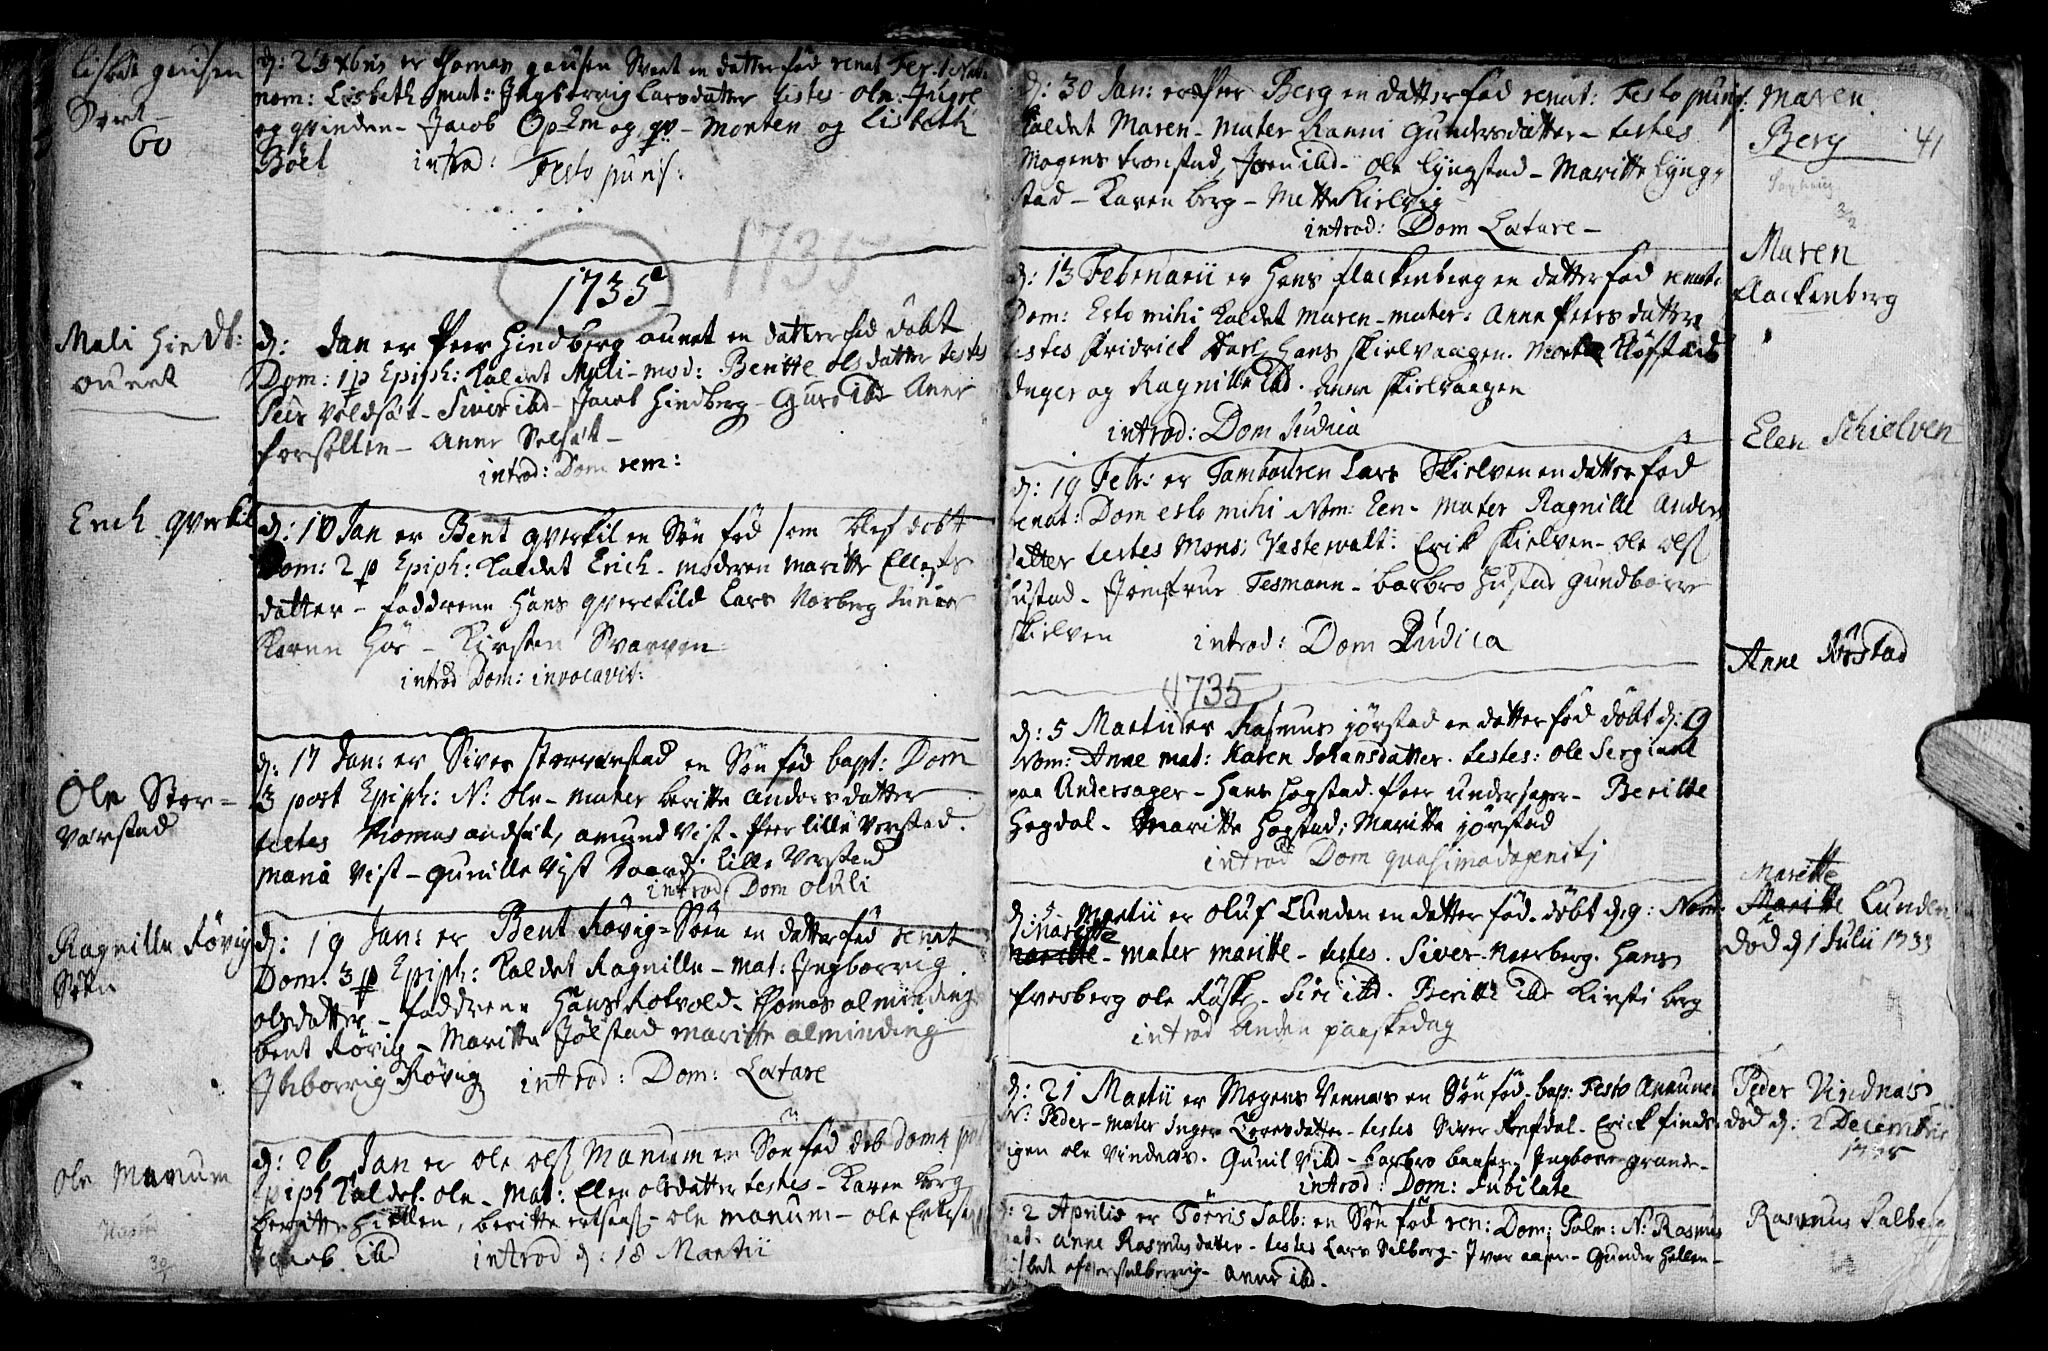 Lisbet gensen
Svedt
60
d: 23 xbris er Thomas gensen Svedt en datter fød renat
nom: Lisbeth mat: Ingborrig Larsdatter testes ole
og qvinden - Jacob og qv - Morten og Lisbeth
Böel introd: Festo purif:
1735
1735
Mali Hindb:
ounet
d: Jan er Peer Hindberg ounet en datter fød döbt
Dom: 1 p Epiph: Kaldet Mali - mod: Beritte olsdatter testes
Peer Voldsæt - Siver ibd - Jacob Hindberg - Guro ibd Anne
- Anne Selsæt -
introd: Dom rem:
Erich qverkil
d: 10 Jan er Bent qverkil en Søn fød som blef døbt
Dom: 2 p Epiph: Kaldet Erich - moderen Maritte Ellefs
datter - faddrene Hans qverkild Lars Norberg
Karen Hoe - Kirsten Svarven
introd Dom: invocavit:
Ole Stor-
Værstad
d: 17 Jan: er Siver storværstad en Søn fød bapt: Dom
3 post Epiph: N: ole - mater beritte andersdatter
testes Thomas andsæt, amund Vist - Peer lille Verstad.
Vist - gunille Vist lille Verstad
introd: Dom oculi
Ragnille Røvig
Söen
d: 19 Jan: er Bent Røvig-Söen en datter fød renat
Dom: 3 p Epiph: Kaldet Ragnille - mat: Ingborrig
olsdatter - faddrene Hans Rotvold - Thomas alminding
bent Røvig - Maritte Jølstad maritte alminding
Ingborrig Røvig introd: Dom: Lætare
Ole Manum
30/1
d: 26 Jan er ole ols Manum en Søn fød döb Dom 4 p
Epiph Kaldet ole - Mat: Ellen olsdatter testes - Karen berg
beritte Hiellen, beritte - ole manum - ole
ibd introd d: 18 Martii
d: 30 Jan: er Peer Berg en datter fød renat: Festo purif:
Kaldet Maren - Mater Ranni Gundersdatter - testes
Mogens tronstad, Joen ibd - ole Lyngstad - Maritte Lyng-
stad - Karen berg - Mette Kielvig
introd: Dom Lætare -
Maren
Berg
41
3/2
d: 13 Februarii er Hans flackenberg en datter fød renat:
Dom: Esto mihi Kaldet maren - mater: Anne Peersdatter
testes Fridrick Hans skielvaagen. Kløfstad
Inger og Ragnille ibd. Anne skielvaagen
introd: Dom Judica
Maren
flackenberg
d: 19 Febr: er Tambouren Lars Skielven en datter fød
renat: Dom esto mihi Nom: Een - Mater Ragnille Anders
datter testes Mons: Vestervalt: Erik skielven - ole ols
Hustad - Jomfrue Tesmann - barbro Hustad gundborre
skielven introd: Dom Judica
Elen Schielven
1735
d: 5 Martii er Rasmus jörstad en datter fød döbt d: 9
Nom: Anne mat: Karen Johansdatter. testes: ole Sergiant
paa Undersager - Hans Hogstad Peer undersager - Beritte
Hegdal - Maritte Hogstad; Maritte jörstad
introd Dom quasimodogeniti
Anne Jörstad
d: 5 Martii er Oluf Lunden en datter fød. döbt d: 9: Nom:
Maritte - mater maritte - testes. Siver Neerberg. Hans
fverberg ole Røske - Siri ibd. Beritte ibd Kirsti berg
introd Anden paaskedag
Maritte
Maritte Lunden
död d 1 Julii 1735
d: 21 Martii er Mogens Vennæs en Sön fød. bap: Festo Annunc:
N: Peder - mater Inger Toresdatter - testes Siver - Erick finds
vigen ole Vindnæs. Gunil Vibd - barbro - Ingborre grande -
introd: Dom: Jubilate
Peder Vindnæs
död d: 2 Decembris
1735
d: 2 Aprilis er Törris Salb: en Sön föd ren: Dom: Palm: N: Rasmus
mat: Anne Rasmusdatter - testes Lars Salberg - Iver aasen - Gunder Hallem -
anne ibd.
Rasmus Salberg